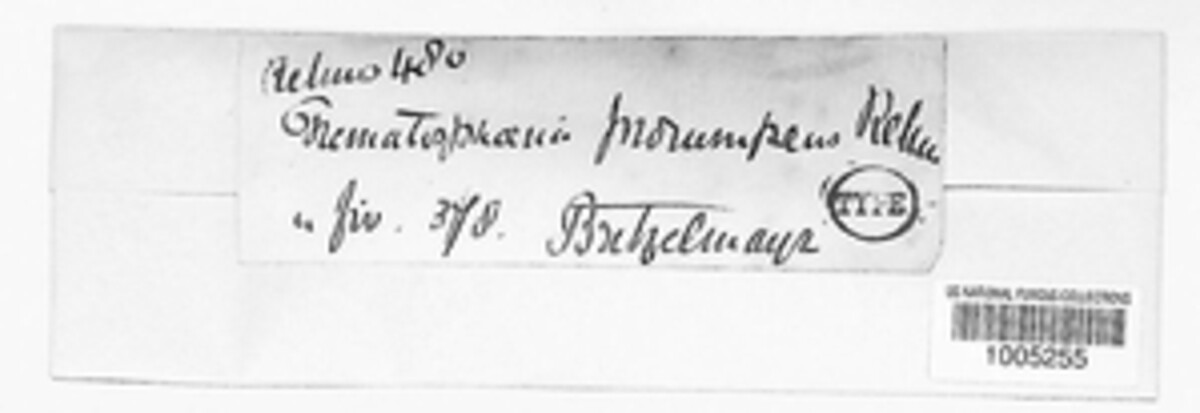 Rehm 480
Trematosphaeria prorumpens Rehm
n fiv. 378. Britzelmayr
TYPE
US NATIONAL FUNGUS COLLECTIONS
1005255